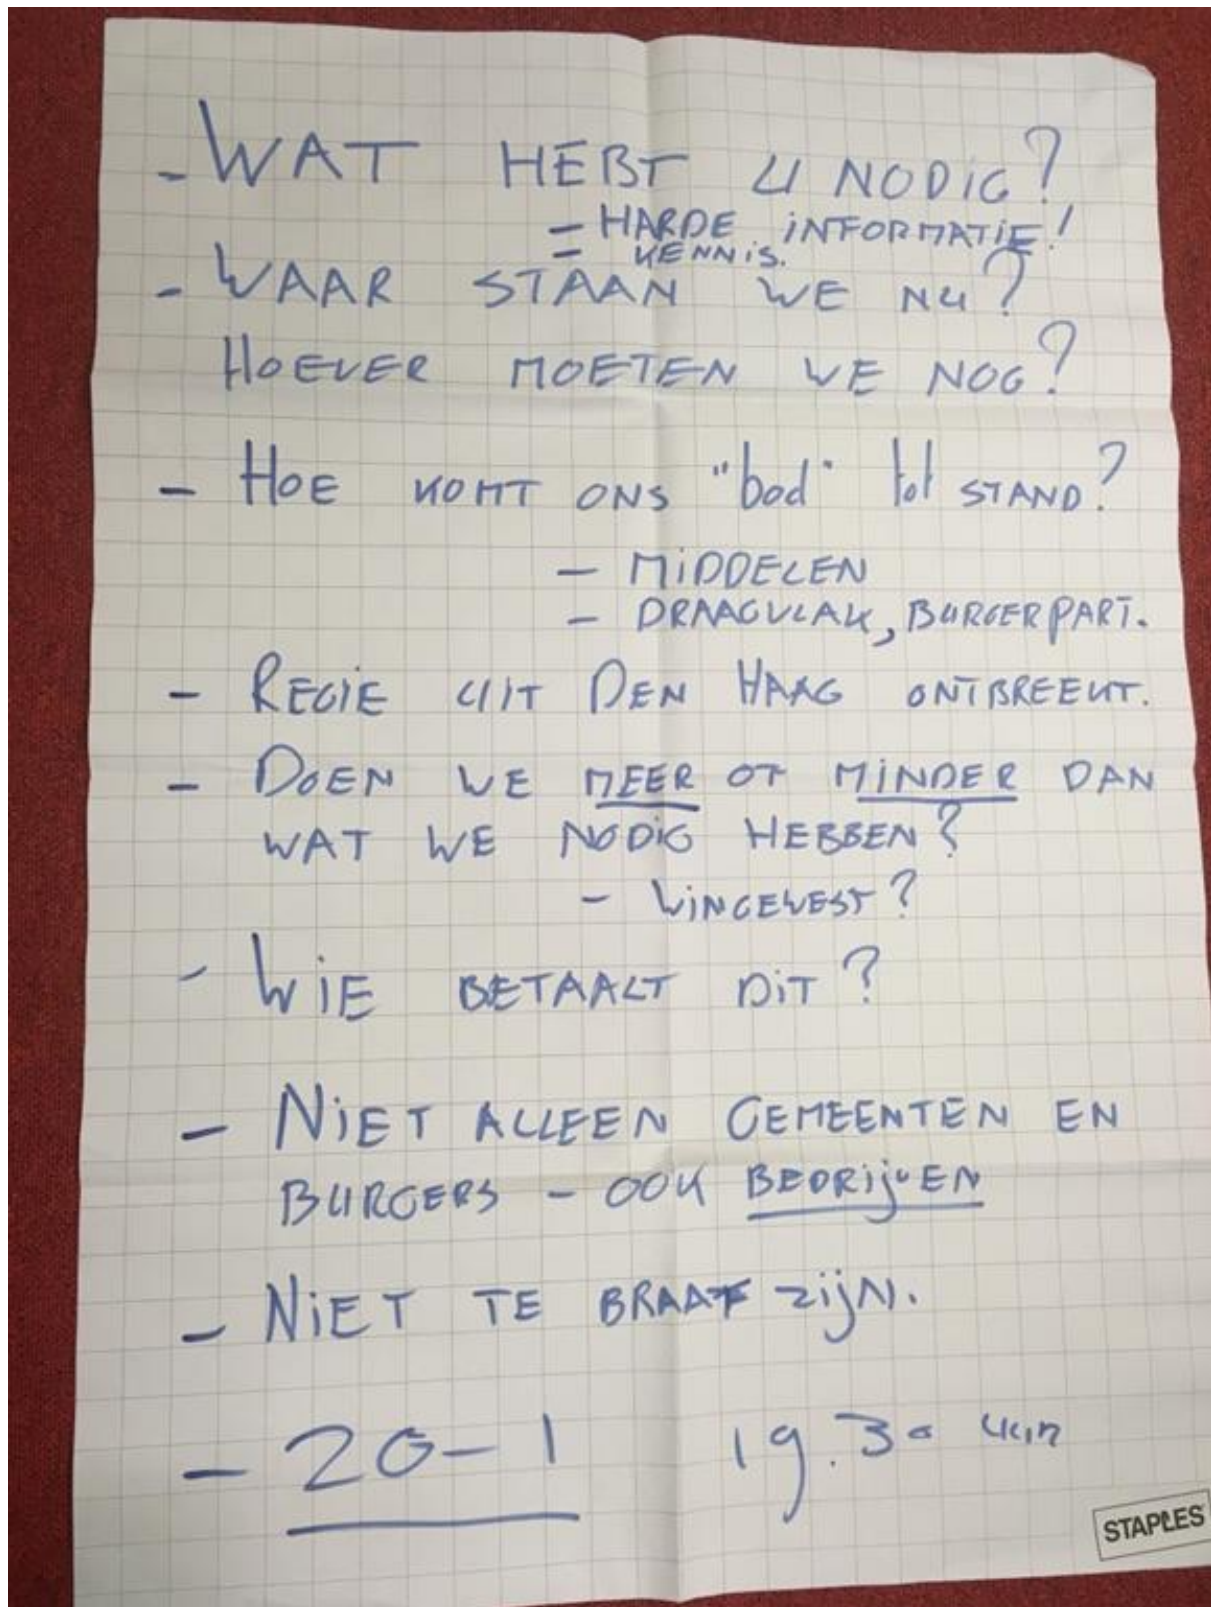 - WAT HEBT U NODIG?
- HARDE INFORMATIE!
- KENNIS.
- WAAR STAAN WE NU?
HOEVER MOETEN WE NOG?
- HOE KOMT ONS "bod" tot STAND?
- MIDDELEN
- DRAAGVLAK, BURGERPART.
- REGIE UIT DEN HAAG ONTBREEKT.
- DOEN WE MEER OF MINDER DAN
WAT WE NODIG HEBBEN?
- WINGEWEST?
- WIE BETAALT DIT?
- NIET ALLEEN GEMEENTEN EN
BURGERS - OOK BEDRIJVEN
- NIET TE BRAAF ZIJN.
- 20-1 19.30 uur
STAPLES